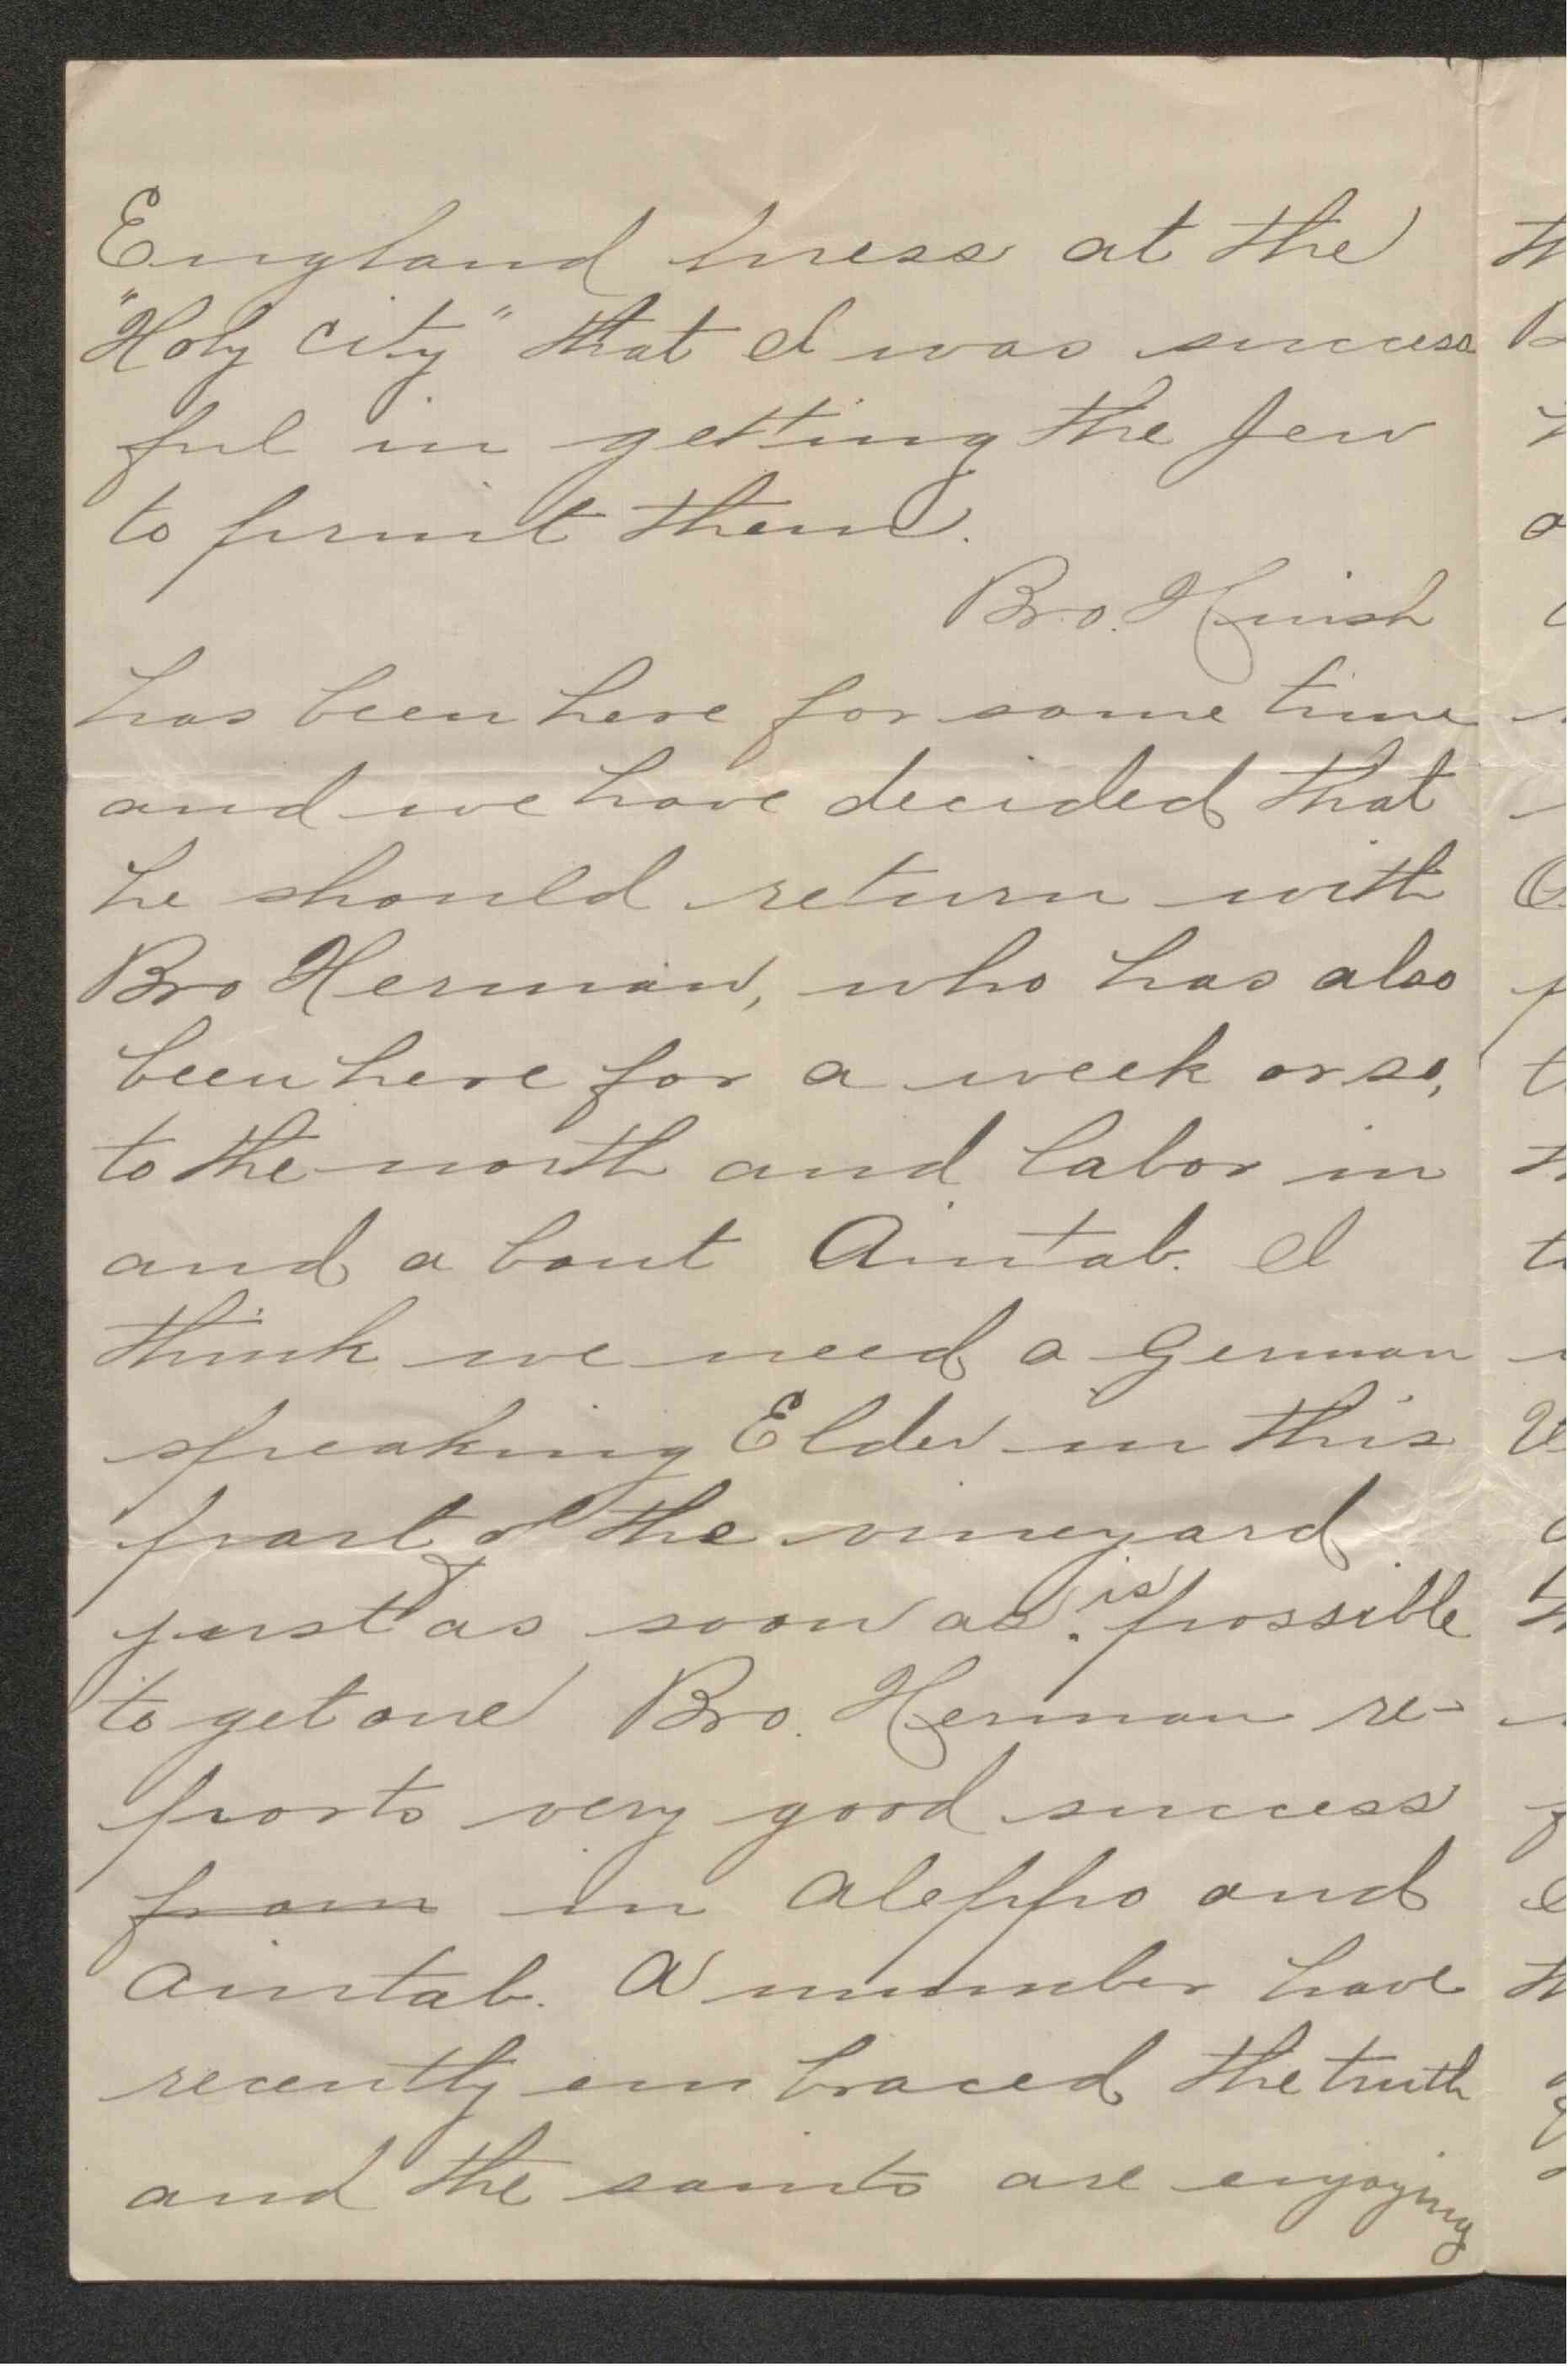 England press at the
"Holy City" that I was success
ful in getting the Jew
to print them.
Bro. Hinish
has been here for some time
and we have decided that
he should return with
Bro Herman, who has also
been here for a week or so,
to the north and labor in
and about Aintab. I
think we need a German
speaking Elder in this
part of the vineyard
just as soon as is possible
to get one Bro. Herman re-
ports very good success
from in Aleppo and
Aintab. A number have
recently embraced the truth
and the saints are enjoying